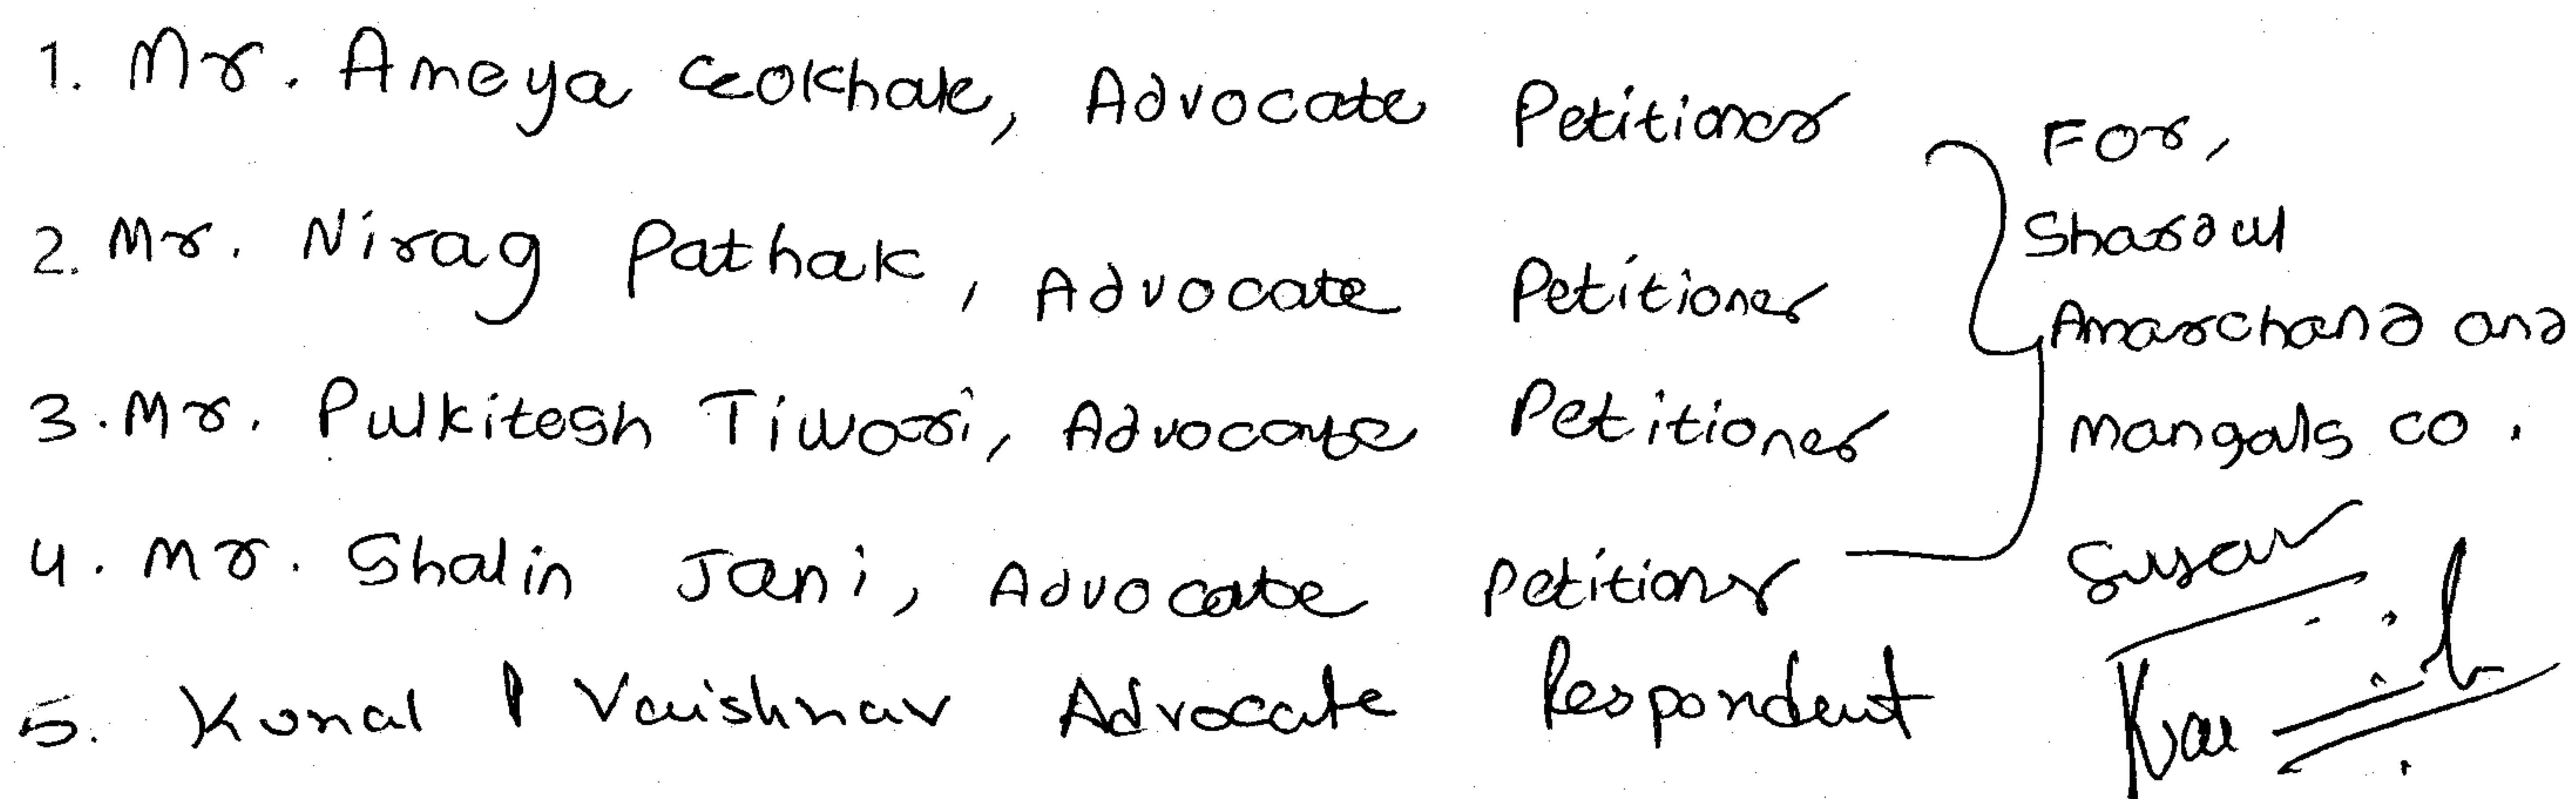 1. Mr. Ameya Gokhale, Advocate Petitioner
2. Mr. Nirag Pathak, Advocate Petitioner
3. Mr. Pulkitesh Tiwari, Advocate Petitioner
4. Mr. Shalin Jani, Advocate Petitioner
5. Kunal P Vaishnav Advocate Respondent
For,
Shardul
Amarchand and
Mangals co.